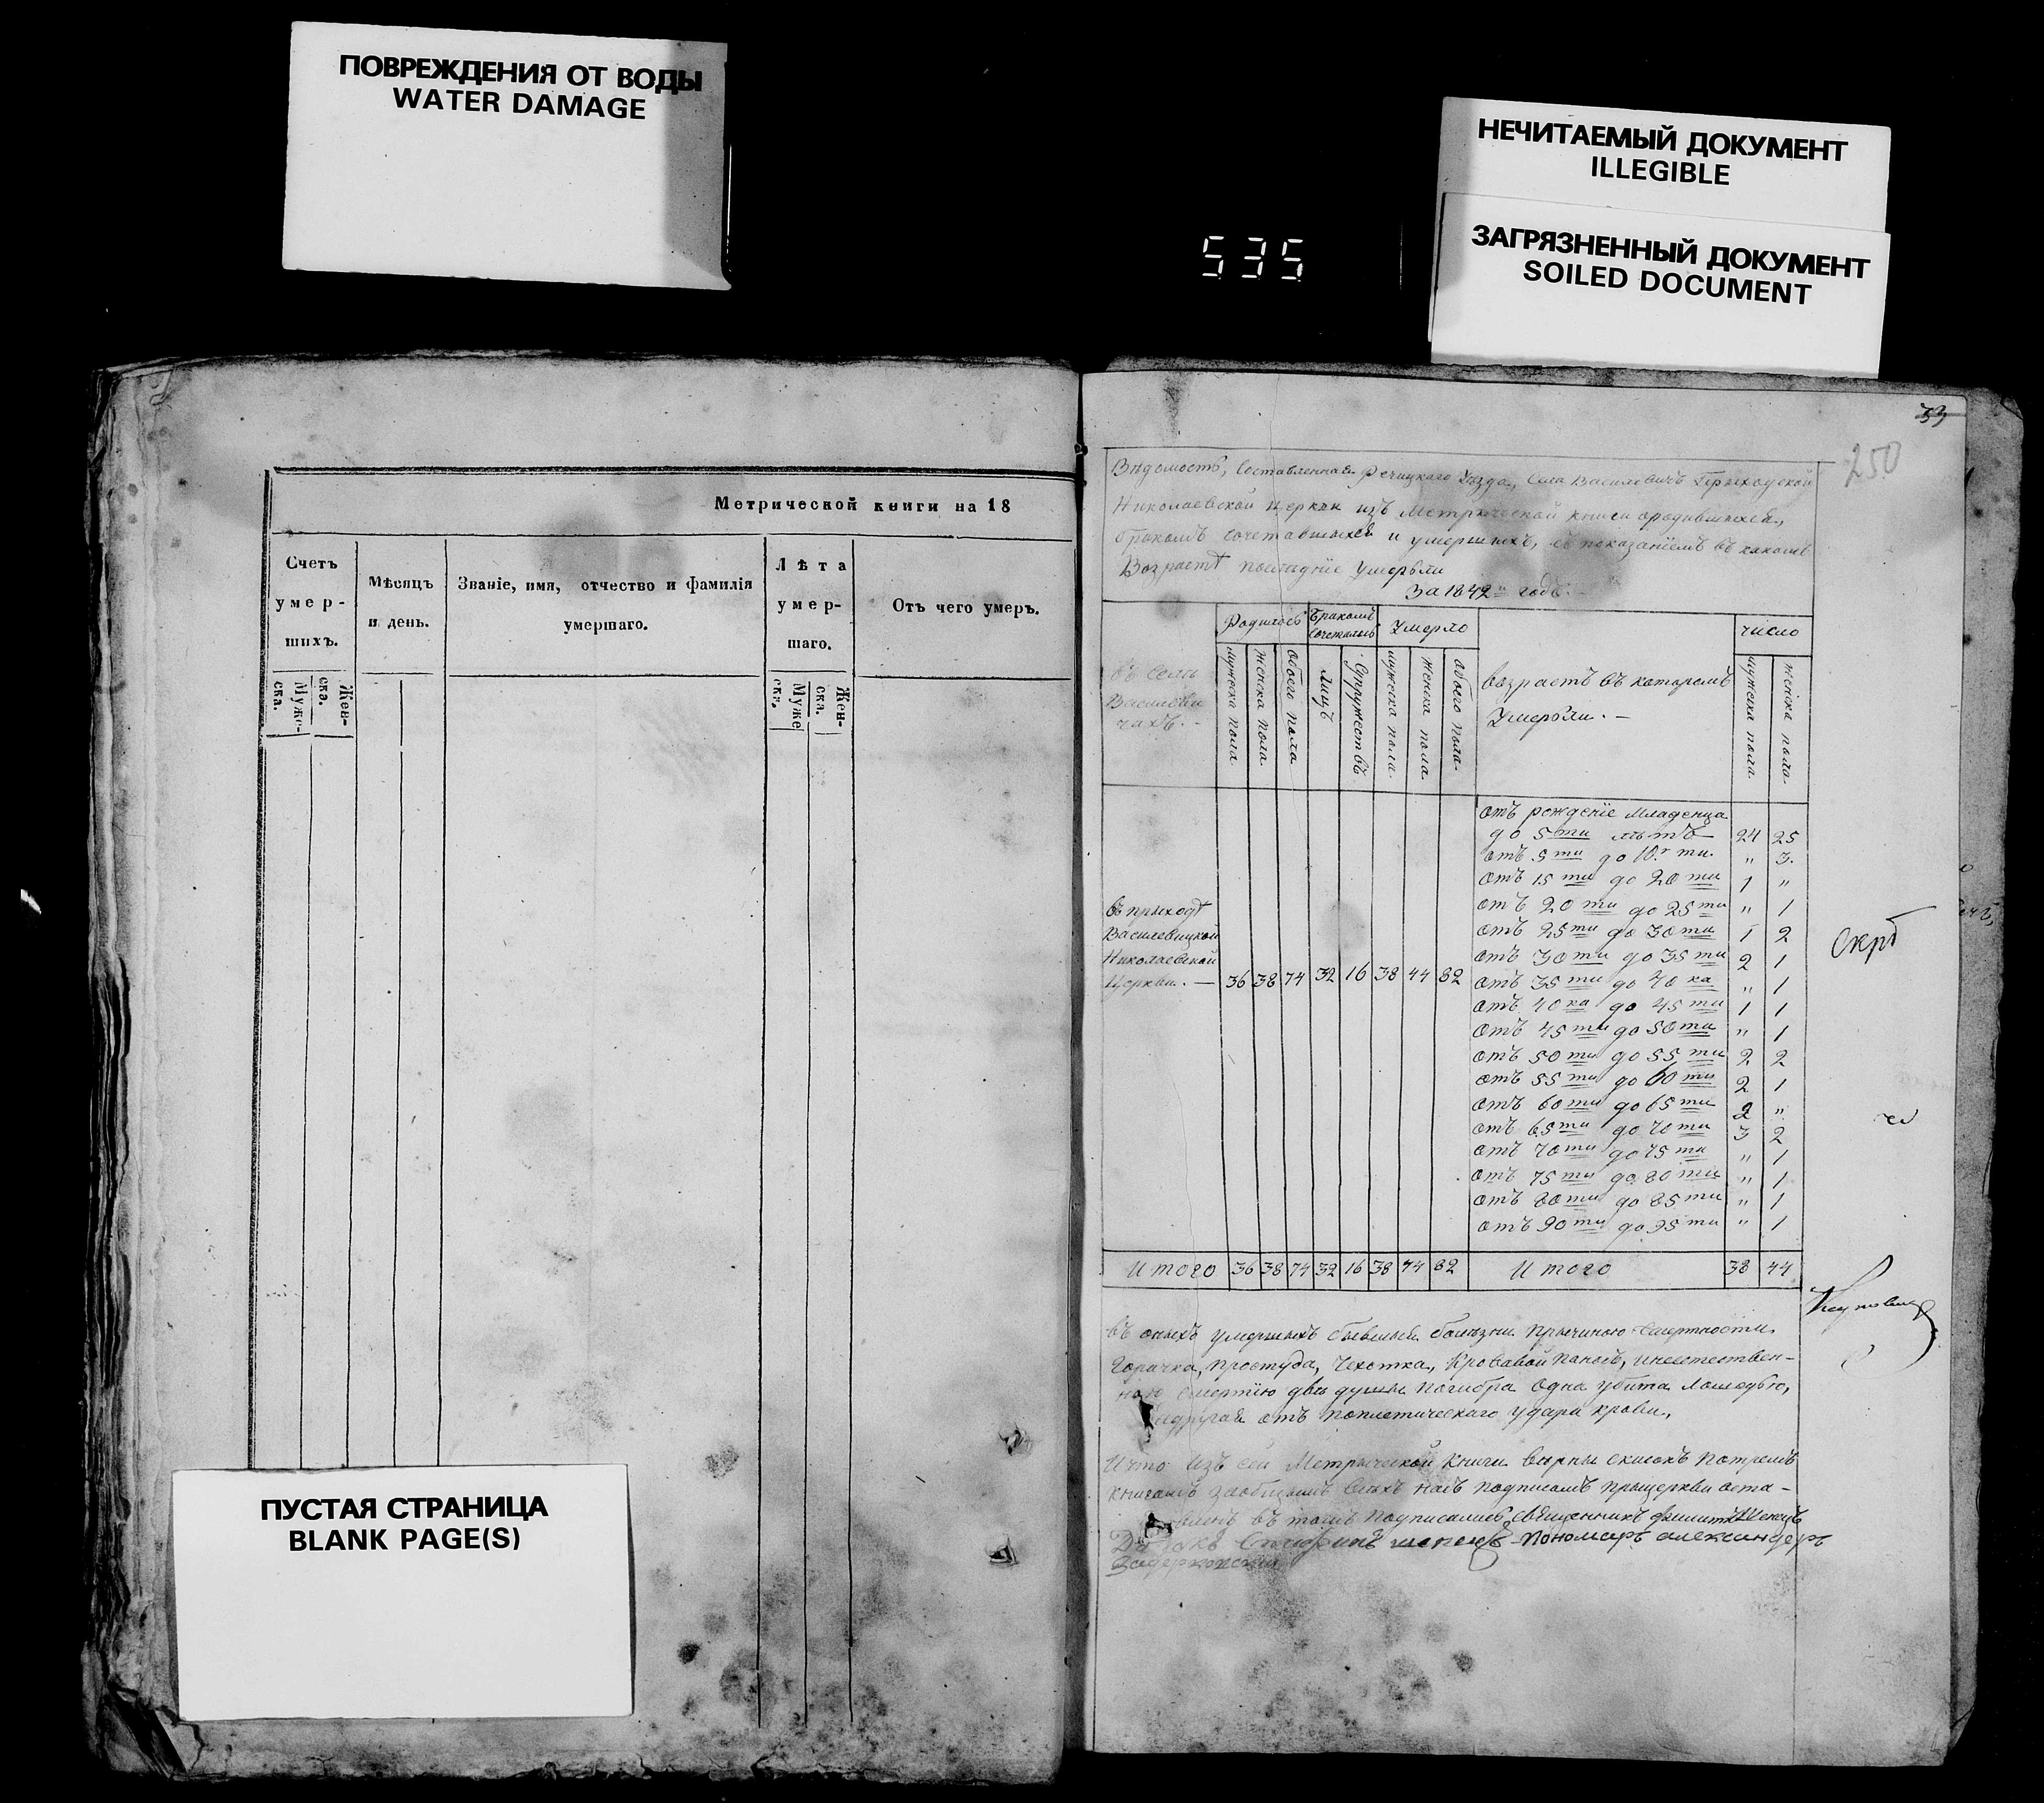 ПОВРЕЖДЕНИЯ ОТ ВОДЫ
WATER DAMAGE
НЕЧИТАЕМЫЙ ДОКУМЕНТ
ILLEGIBLE
ЗАГРЯЗНЕННЫЙ ДОКУМЕНТ
SOILED DOCUMENT
535
Метрической книги на 18
Счетъ умер-шихъ.
Муже-ска.
Жен-ска.
Мѣсяцъ и день.
Званіе, имя, отчество и фамилія умершаго.
Лѣта умер-шаго.
Муже ска.
Жен-ска.
Отъ чего умеръ.
ПУСТАЯ СТРАНИЦА
BLANK PAGE(S)
33
250
Вѣдомость, Составленная Речицкаго Уѣзда, Села Василевичъ Прыходской
Николаевской церкви изъ Метрической книги ородившихся,
бракомъ сочетавшихся и умершихъ, съ показаніемъ въ какомъ
Возрастѣ послѣдніе Умерьли
За 1842 годъ.
въ селѣ Василеви чахъ. -
Родилось
мужеска пола
женска пола
обоего пола
Бракомъ сочеталось
лицъ
Супружествъ
Умерло
мужеска пола
женска пола
обоего пола
возрастъ въ каторомъ Умерьли. -
число
мужеска пола
женска пола
отъ рожденіе младенца
до 5 ти лѣтъ 24 25
отъ 5 ти до 10 ти. " 3.
отъ 15 ти до 20 ти 1 "
отъ 20 ти до 25 ти " 1
отъ 25 ти до 30 ти 1 2
отъ 30 ти до 35 ти 2 1
отъ 35 ти до 40 ка " 1
отъ 40 ка до 45 ти 1 1
отъ 45 ти до 50 ти " 1
отъ 50 ти до 55 ти 2 2
отъ 55 ти до 60 ти 2 1
отъ 60 ти до 65 ти 2 "
отъ 65 ти до 70 ти 3 2
отъ 70 ти до 75 ти " 1
отъ 75 ти до 80 ти " 1
отъ 80 ти до 85 ти " 1
отъ 90 ти до 95 ти " 1
въ прыходѣ
Василевицкой
Николаевской
Церкви. - 36 38 74 32 16 38 44 82
Итого 36 38 74 32 16 38 44 82 Итого 38 44
въ оныхъ умершихъ бывшыя болѣзни прычиною смертности
Горачка, простуда, Чехотка, Кровавой поносъ, инеестествен-
ною смертію двѣ душы погибра одна убита лошедью,
идругая отъ поплетическаго удара крови,
Что изъ сей Метрыческой книги вѣрны списокъ
книгамъ подписомъ прыцеркви оста-
въ томъ подписались, Священникъ
Пономаръ александеръ